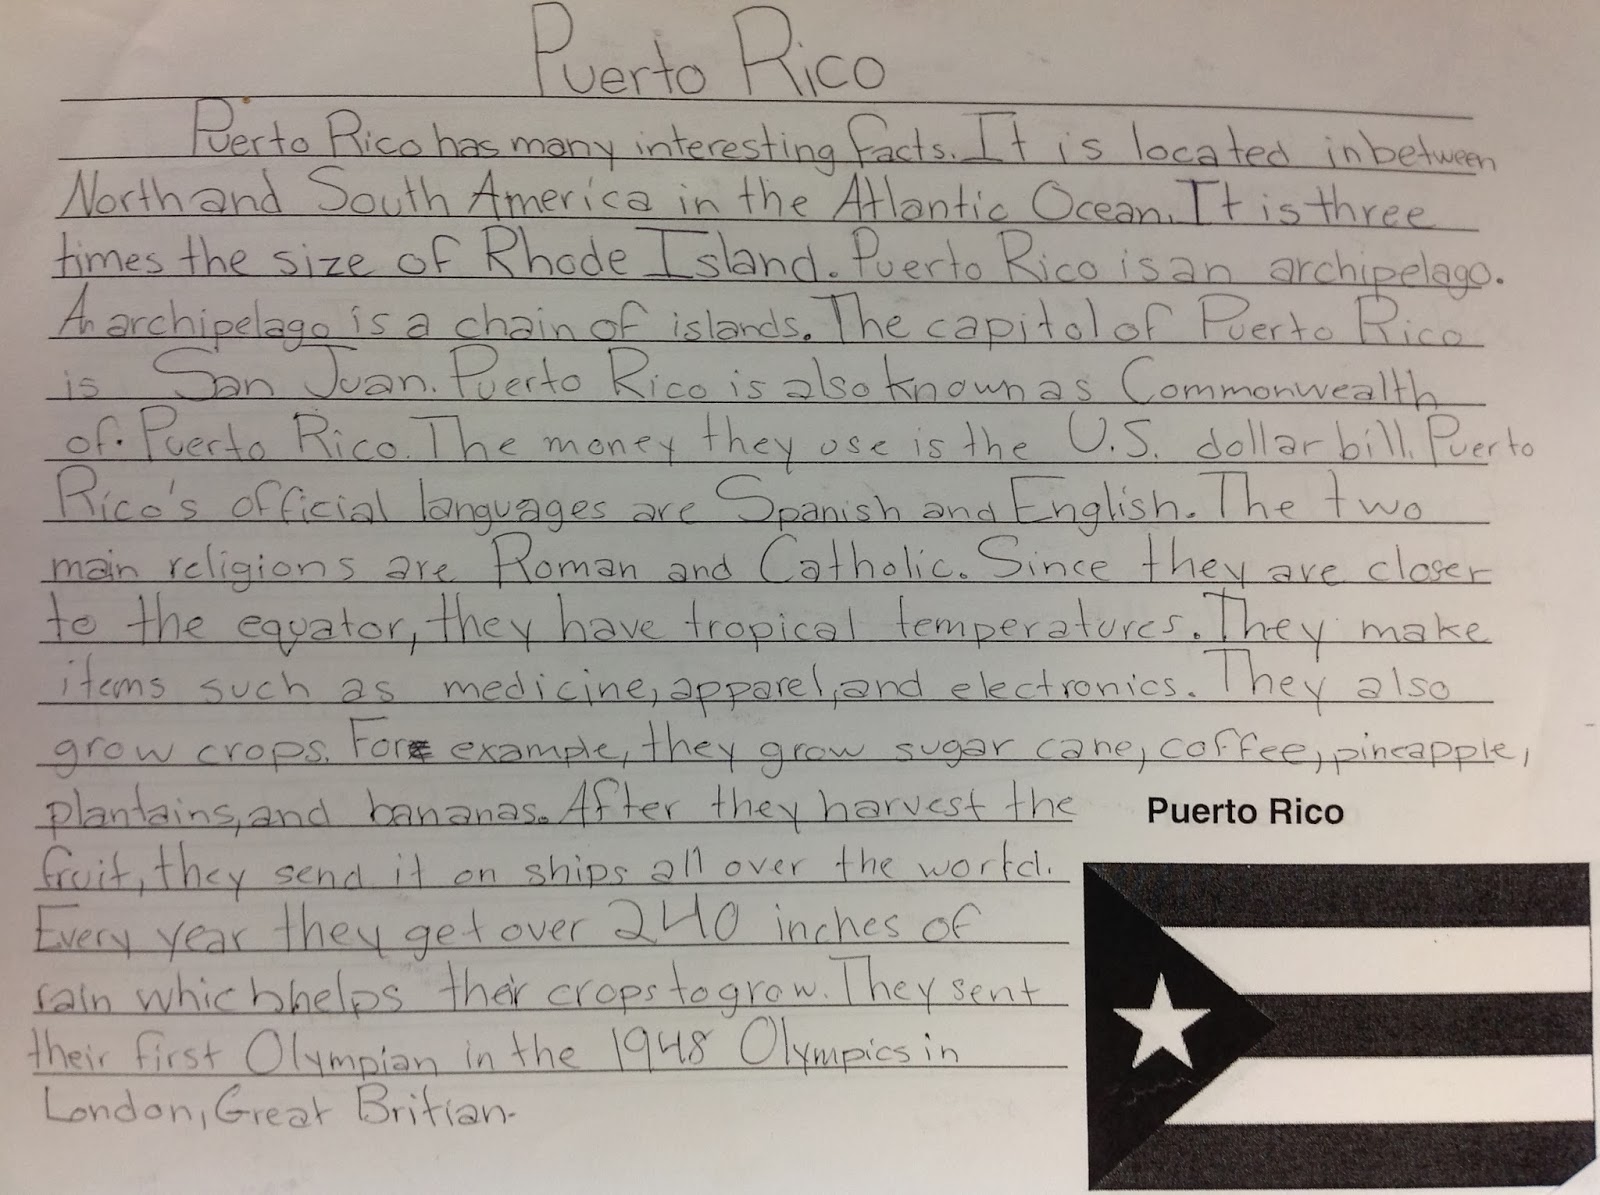 Puerto Rico
Puerto Rico has many interesting facts. It is located inbetween
North and South America in the Atlantic Ocean. It is three
times the size of Rhode Island. Puerto Rico is an archipelago.
An archipelago is a chain of islands. The capitol of Puerto Rico
is San Juan. Puerto Rico is also known as Commonwealth
of Puerto Rico. The money they use is the U.S. dollar bill. Puerto
Rico's official languages are Spanish and English. The two
main religions are Roman and Catholic. Since they are closer
to the equator, they have tropical temperatures. They make
items such as medicine, apparel, and electronics. They also
grow crops. For example, they grow sugar cane, coffee, pineapple,
plantains, and bananas. After they harvest the
fruit, they send it on ships all over the world.
Every year they get over 240 inches of
rain which helps their crops to grow. They sent
their first Olympian in the 1948 Olympics in
London, Great Britian.
Puerto Rico